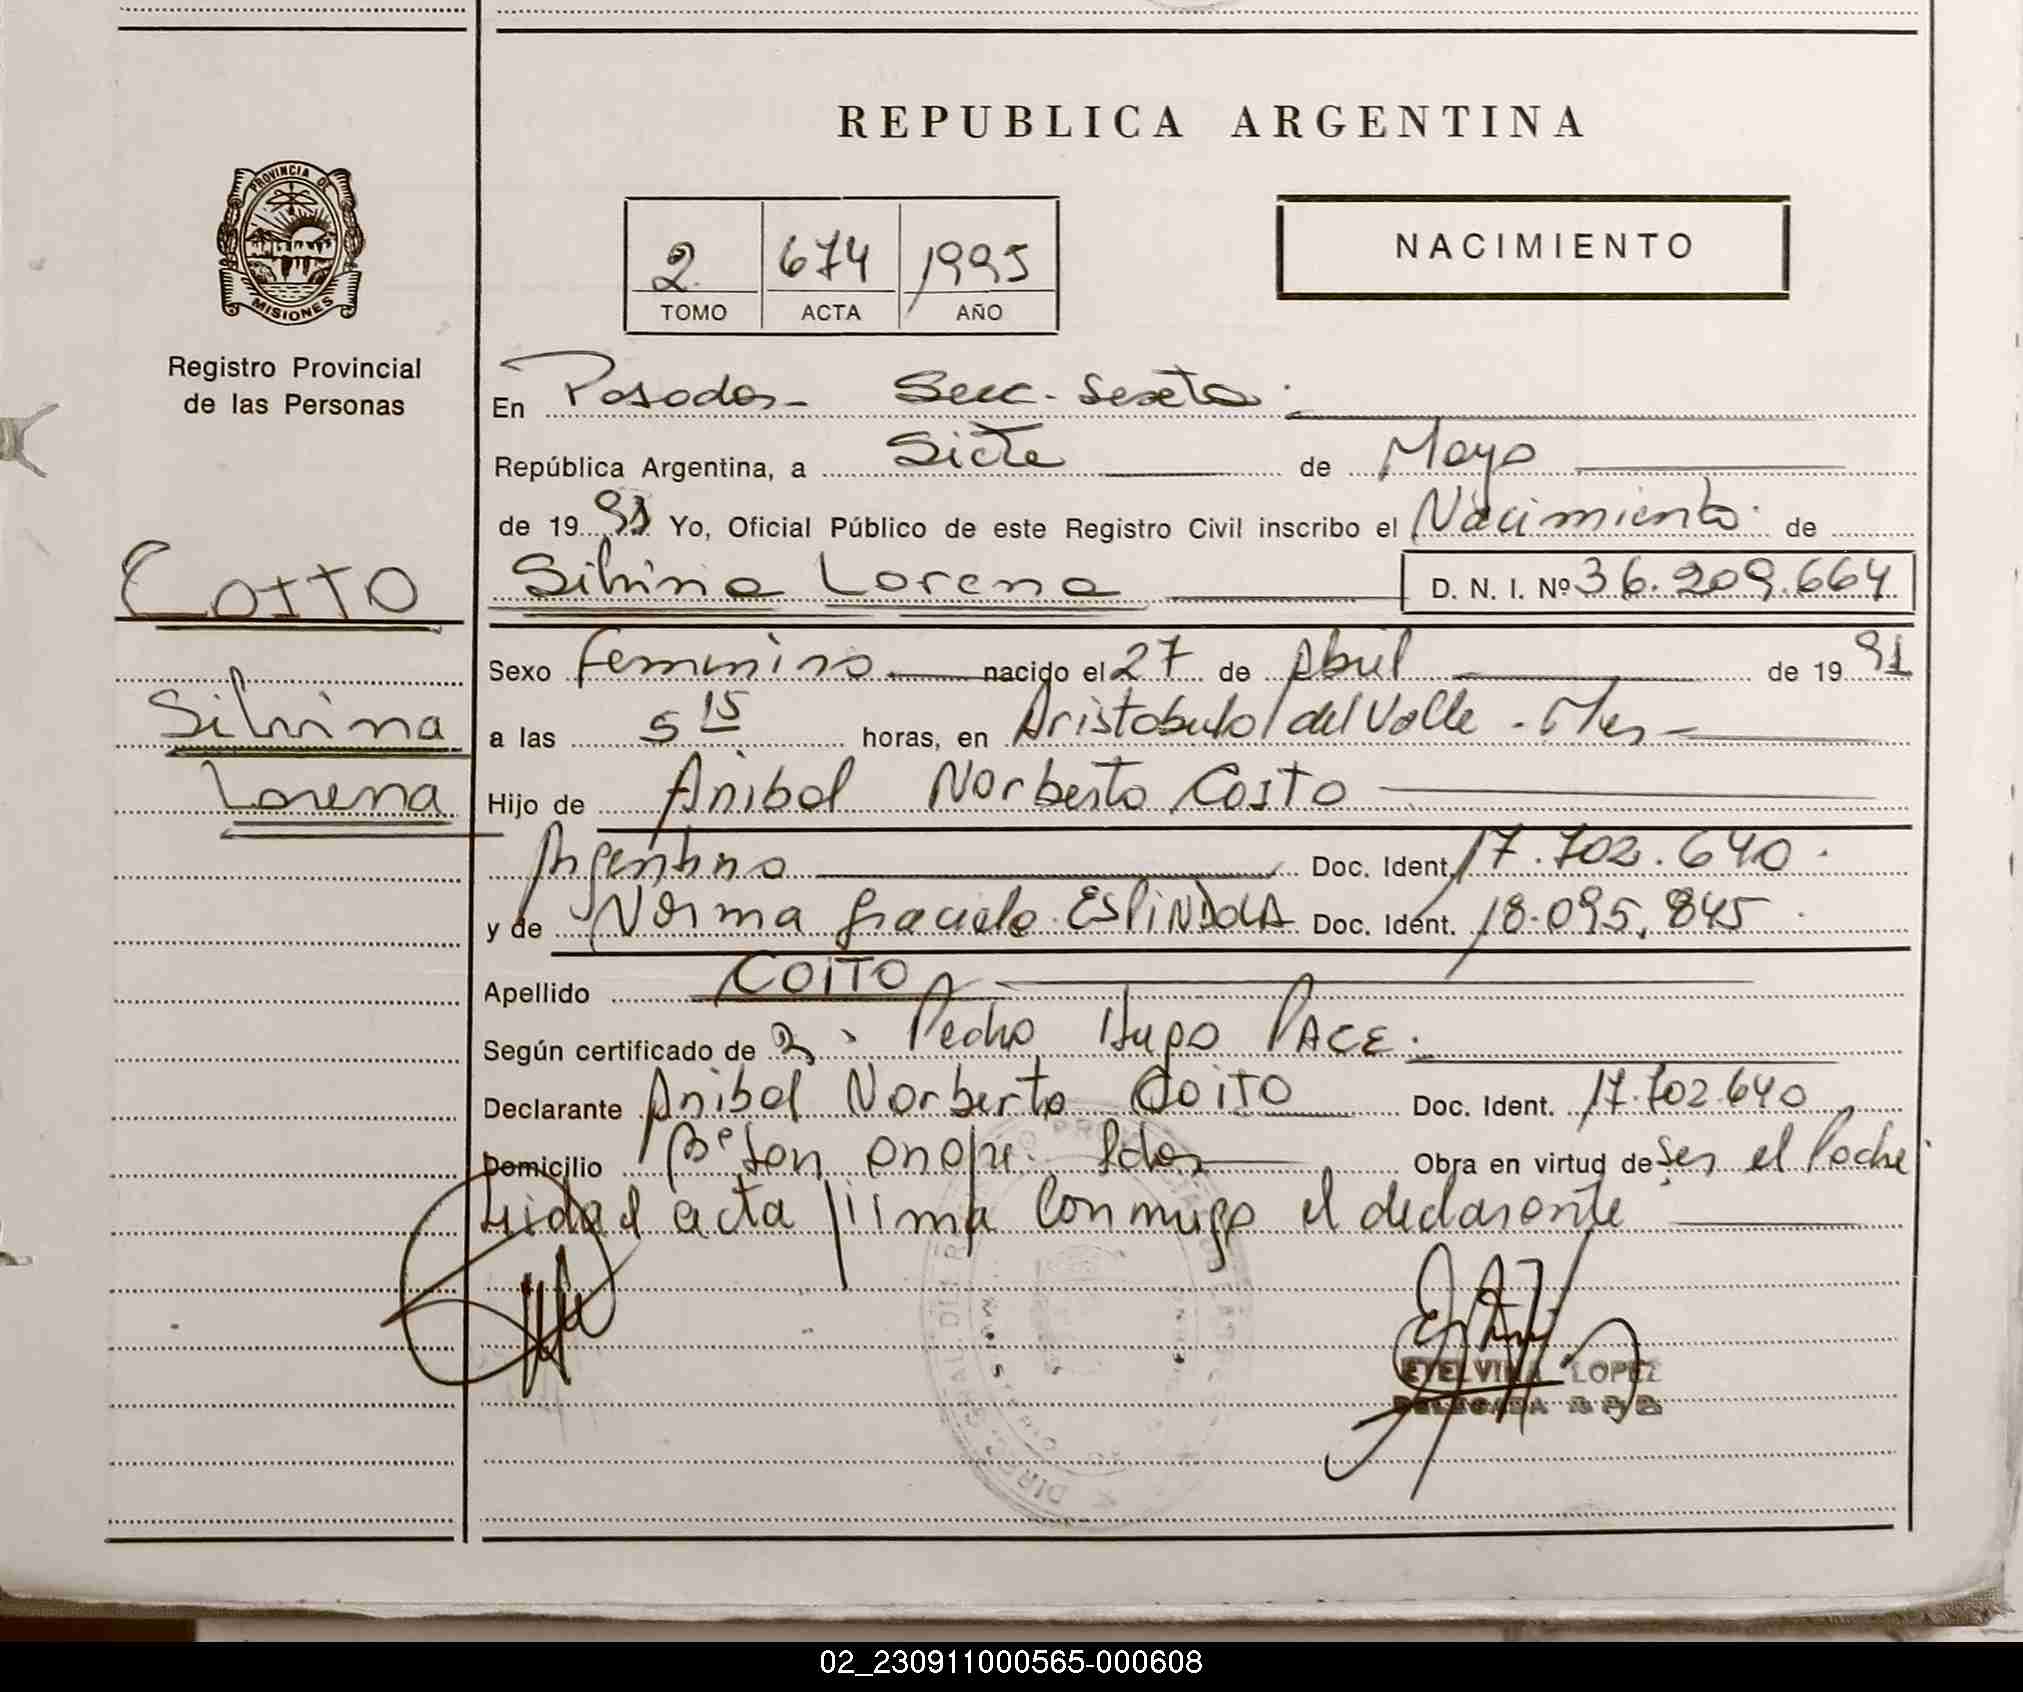 REPUBLICA ARGENTINA
PROVINCIA DE
MISIONES
2 674 1995
TOMO ACTA AÑO
NACIMIENTO
Registro Provincial
de las Personas
En Posadas - Secc. Sexta.
República Argentina, a Siete de Mayo
de 19 91 Yo, Oficial Público de este Registro Civil inscribo el Nacimiento de
Silvina Lorena D. N. I. Nº 36.209.664
COITO
Silvina
Lorena
Sexo femenino nacido el 27 de Abril de 19 91
a las 5 15 horas, en Aristobulo del Valle - Mes -
Hijo de Anibal Norberto Coito
Argentino Doc. Ident. 17.702.640.
y de Norma Graciela ESPINDOLA Doc. Ident. 18.095.845.
Apellido COITO
Según certificado de Pedro Hugo PACE.
Declarante Anibal Norberto COITO Doc. Ident. 17.702.640
Domicilio Bº San Onofre. Pdas Obra en virtud de Ser el Padre.
Leida el acta firma conmigo el declarante
ETELVINA LOPEZ
DELEGADA R.P.P.
02_230911000565-000608